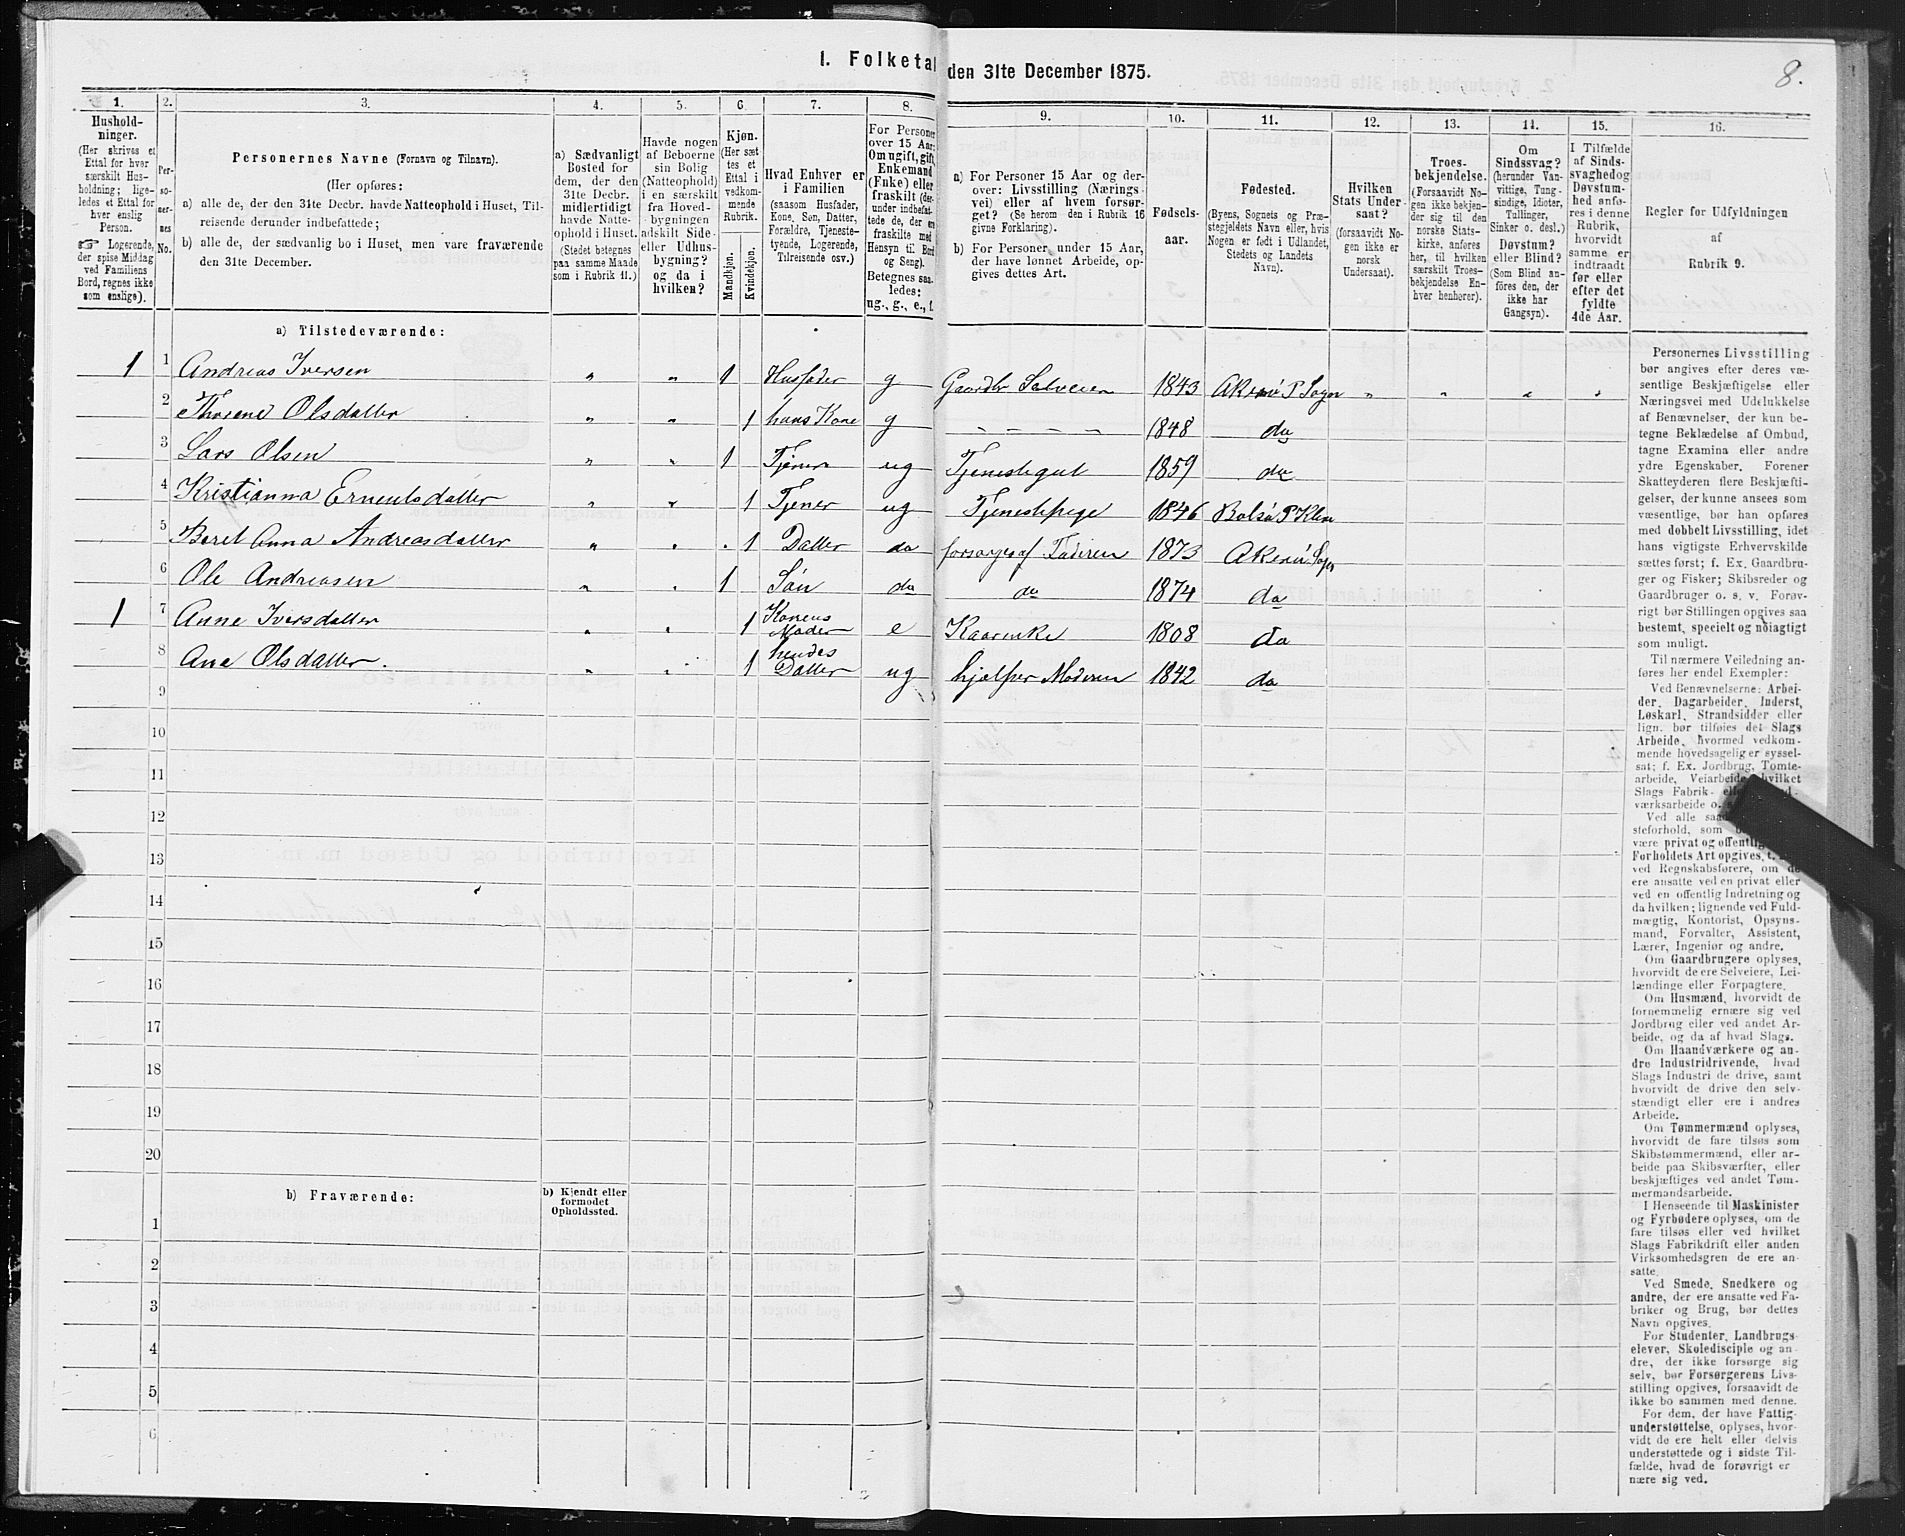 1. Folketal den 31te December 1875.
8.
1. 2. 3. 4. 5. 6. 7. 8. 9. 10. 11. 12. 13. 14. 15. 16.
Hushold-
ninger.
(Her skrives et
Ettal for hver
særskilt Hus-
holdning; lige-
ledes et Ettal for
hver enslig
Person.
☞ Logerende,
der spise Middag
ved Familiens
Bord, regnes ikke
som enslige).
Per-
so-
ner-
nes
No.
Personernes Navne (Fornavn og Tilnavn).
(Her opføres:
a) alle de, der den 31te Decbr. havde Natteophold i Huset, Til-
reisende derunder indbefattede;
b) alle de, der sædvanlig bo i Huset, men vare fraværende
den 31te December.
a) Sædvanligt
Bosted for
dem, der den
31te Decbr.
midlertidigt
havde Natte-
ophold i Huset.
(Stedet betegnes
paa samme Maade
som i Rubrik 11.)
Havde nogen
af Beboerne
sin Bolig
(Natteophold)
i en særskilt
fra Hoved-
bygningen
adskilt Side-
eller Udhus-
bygning?
og da i
hvilken?
Kjøn.
(Her sæt-
tes et
Ettal i
vedkom-
mende
Rubrik.
Mandkjøn.
Kvindekjøn.
Hvad Enhver er
i Familien
(saasom Husfader,
Kone, Søn, Datter,
Forældre, Tjeneste-
tyende, Logerende,
Tilreisende osv.)
For Personer
over 15 Aar:
Om ugift, gift,
Enkemand
(Enke) eller
fraskilt (der-
under indbefat-
tede de, der ere
fraskilte med
Hensyn til Bord
og Seng).
Betegnes saa-
ledes:
ug., g., e., f.
a) For Personer 15 Aar og der-
over: Livsstilling (Nærings-
vei) eller af hvem forsør-
get? (Se herom den i Rubrik 16
givne Forklaring).
b) For Personer under 15 Aar,
der have lønnet Arbeide, op-
gives dettes Art.
Fødsels-
aar.
Fødested.
(Byens, Sognets og Præ-
stegjeldets Navn eller, hvis
Nogen er født i Udlandet,
Stedets og Landets
Navn).
Hvilken
Stats Under-
saat?
(forsaavidt No-
gen ikke er
norsk
Undersaat).
Troes-
bekjendelse.
(Forsaavidt No-
gen ikke bekjen-
der sig til den
norske Stats-
kirke, anføres
her, til hvilken
særskilt Troes-
bekjendelse En-
hver henhører).
Om
Sindssvag?
(herunder Van-
vittige, Tung-
sindige, Idioter,
Tullinger,
Sinker o. desl.)
Døvstum?
eller Blind?
(Som Blind an-
føres den, der
ikke har
Gangsyn).
I Tilfælde
af Sinds-
svaghed og
Døvstum-
hed anfø-
res i denne
Rubrik,
hvorvidt
samme er
indtraadt
før eller
efter det
fyldte
4de Aar.
Regler for Udfyldningen
af
Rubrik 9.
a) Tilstedeværende:
1 1 Andreas Iversen „ „ 1 Husfader g Gaardbr Selveier 1843 Akerø P Sogn „ „ „ „
2 Olsdatter „ „ 1 hans Kone g „ „ „ „ 1848 do
3 Lars Olsen „ „ 1 Tjener ug Tjenestegut 1859 do
4 Kristianna „ „ 1 Tjener ug Tjenestepige 1846 Bolsø P
5 Beret Anna Andreasdatter „ „ „ 1 Datter do forsørges af Faderen 1873 Akerø Sogn
6 Ole Andreasen „ „ 1 Søn do do 1874 do
1 7 Anne Iversdatter „ „ 1 Konens
Moder e Kaarenke 1808 do
8 Ane Olsdatter. „ „ 1 hendes
Datter ug hjælper Moderen 1842 do
9
10
11
12
13
14
15
16
17
18
19
20
b) Fraværende:
b) Kjendt eller
formodet
Opholdssted.
1
2
3
4
5
6
Personernes Livsstilling
bør angives efter deres væ-
sentlige Beskjæftigelse eller
Næringsvei med Udelukkelse
af Benævnelser, der kun be-
tegne Beklædelse af Ombud,
tagne Examina eller andre
ydre Egenskaber. Forener
Skatteyderen flere Beskjæfti-
gelser, der kunne ansees som
væsentlige, bør han opføres
med dobbelt Livsstilling, idet
hans vigtigste Erhvervskilde
sættes først; f. Ex. Gaardbru-
ger og Fisker; Skibsreder og
Gaardbruger o. s. v. Forøv-
rigt bør Stillingen opgives saa
bestemt, specielt og nøiagtigt
som muligt.
Til nærmere Veiledning an-
føres her endel Exempler:
Ved Benævnelserne: Arbei-
der, Dagarbeider, Inderst,
Løskarl, Strandsidder eller
lign. bør tilføies det Slags
Arbeide, hvormed vedkom-
mende hovedsagelig er syssel-
sat; f. Ex. Jordbrug, Tomte-
arbeide, Veiarbeide, hvilket
Slags Fabrik-
værksarbeide o.
Ved alle
steforhold, som
være privat og offentlig
Forholdets Art opgives, t.
ved Regnskabsførere, om de
ere ansatte ved en privat eller
ved en offentlig Indretning og
da hvilken; lignende ved Fuld-
mægtig, Kontorist, Opsyns-
mand, Forvalter, Assistent,
Lærer, Ingeniør og andre.
Om Gaardbrugere oplyses,
hvorvidt de ere Selveiere, Lei-
lændinge eller Forpagtere.
Om Husmænd, hvorvidt de
fornemmelig ernære sig ved
Jordbrug eller ved andet Ar-
beide, og da af hvad Slags.
Om Haandværkere og an-
dre Industridrivende, hvad
Slags Industri de drive, samt
hvorvidt de drive den selv-
stændigt eller ere i andres
Arbeide.
Om Tømmermænd oplyses,
hvorvidt de fare tilsøs som
Skibstømmermænd, eller ar-
beide paa Skibsværfter, eller
beskjæftiges ved andet Tøm-
mermandsarbeide.
I Henseende til Maskinister
og Fyrbødere oplyses, om de
fare tilsøs eller ved hvilket
Slags Fabrikdrift eller anden
Virksomhedsgren de ere an-
satte.
Ved Smede, Snedkere og
andre, der ere ansatte ved Fa-
briker og Brug, bør dettes
Navn opgives.
For Studenter, Landbrugs-
elever, Skoledisciple og an-
dre, der ikke forsørge sig
selv, bør Forsørgerens Livs-
stilling opgives, forsaavidt de
ikke bo sammen med denne.
For dem, der have Fattig-
understøttelse, oplyses, hvor-
vidt de ere helt eller delvis
understøttede og i sidste Til-
fælde, hvad de forøvrigt er-
nære sig ved.